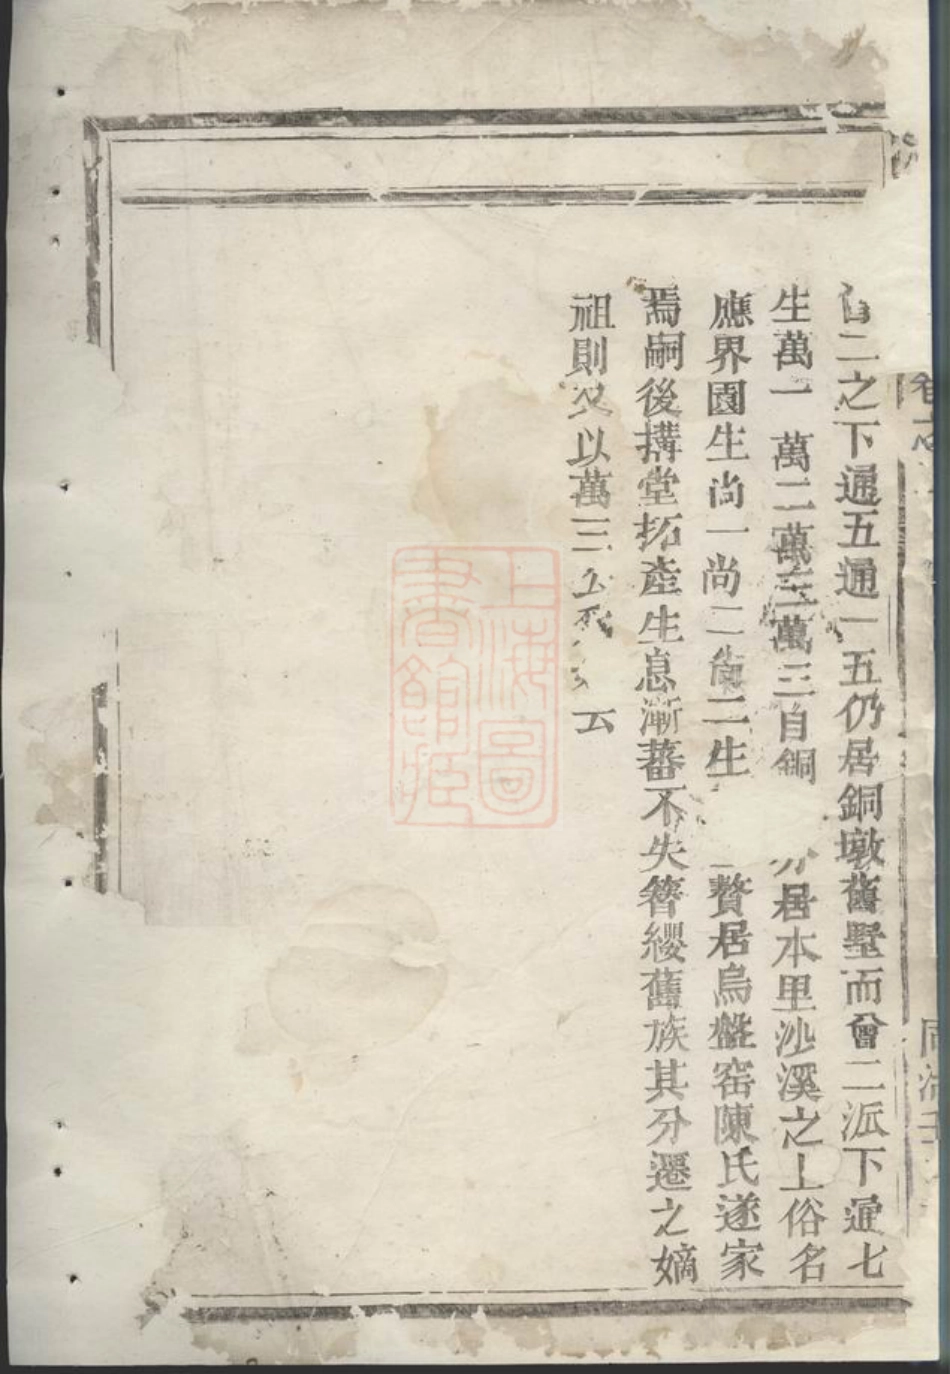 二之下通五通一五仍居銅墩舊墅而曾二派下通七
生萬一萬二萬三萬三自銅 分居本里沙溪之上俗名
應界園生尚一尚二尚二生 贅居烏盤窑陳氏遂家
焉嗣後搆堂拓產生息漸蕃不失簪纓舊族其分遷之嫡
祖則又以萬三公 云
上海圖書館藏